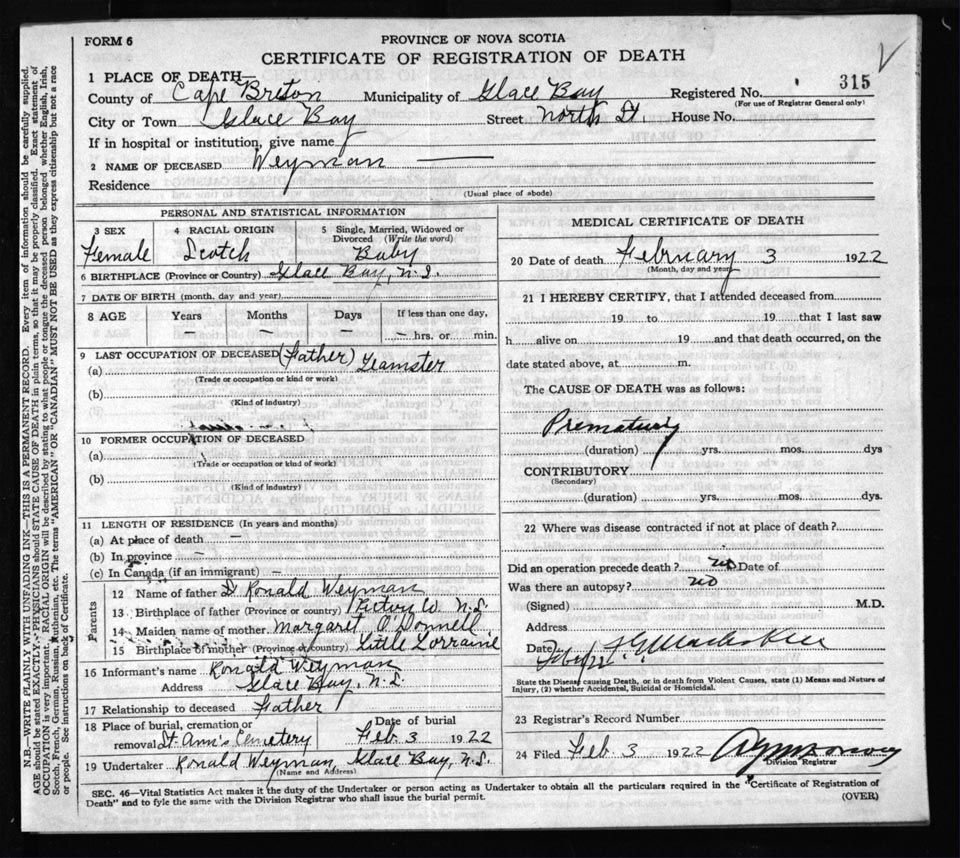 FORM 6
PROVINCE OF NOVA SCOTIA
CERTIFICATE OF REGISTRATION OF DEATH
1 PLACE OF DEATH— 315
County of Cape Breton Municipality of Glace Bay Registered No.
(For use of Registrar General only)
City or Town Glace Bay Street North St. House No.
If in hospital or institution, give name
2 NAME OF DECEASED Weyman —
Residence
(Usual place of abode)
PERSONAL AND STATISTICAL INFORMATION
3 SEX 4 RACIAL ORIGIN 5 Single, Married, Widowed or Divorced (Write the word)
Female Scotch Baby
6 BIRTHPLACE (Province or Country) Glace Bay, N.S.
7 DATE OF BIRTH (month, day and year)
8 AGE Years Months Days If less than one day,
— — — — hrs. or min.
9 LAST OCCUPATION OF DECEASED (Father) Teamster
(a)
(Trade or occupation or kind or work)
(b)
(Kind of industry)
10 FORMER OCCUPATION OF DECEASED
(a)
(Trade or occupation or kind of work)
(b)
(Kind of industry)
11 LENGTH OF RESIDENCE (In years and months)
(a) At place of death —
(b) In province —
(c) In Canada (if an immigrant) —
Parents
12 Name of father D. Ronald Weyman
13 Birthplace of father (Province or country) Pictou Co. N.S.
14 Maiden name of mother Margaret O'Donnell
15 Birthplace of mother (Province or country) Little Lorraine
16 Informant's name Ronald Weyman
Address Glace Bay, N.S.
17 Relationship to deceased Father
18 Place of burial, cremation or removal St. Ann's Cemetery Date of burial Feb 3 1922
19 Undertaker Ronald Weyman, Glace Bay, N.S.
(Name and Address)
MEDICAL CERTIFICATE OF DEATH
20 Date of death February 3 1922
(Month, day and year)
21 I HEREBY CERTIFY, that I attended deceased from
19 to 19 that I last saw
h alive on 19 and that death occurred, on the
date stated above, at m.
The CAUSE OF DEATH was as follows:
Prematurity
(duration) yrs. mos. dys
CONTRIBUTORY
(Secondary)
(duration) yrs. mos. dys.
22 Where was disease contracted if not at place of death?
Did an operation precede death? no Date of
Was there an autopsy? no
(Signed) M.D.
Address
Date
State the Disease causing Death, or in death from Violent Causes, state (1) Means and Nature of
Injury, (2) whether Accidental, Suicidal or Homicidal.
23 Registrar's Record Number
24 Filed Feb. 3 1922
Division Registrar
SEC. 46—Vital Statistics Act makes it the duty of the Undertaker or person acting as Undertaker to obtain all the particulars required in the "Certificate of Registration of
Death" and to fyle the same with the Division Registrar who shall issue the burial permit.
(OVER)
N.B.—WRITE PLAINLY WITH UNFADING INK—THIS IS A PERMANENT RECORD. Every item of information should be carefully supplied.
AGE should be stated EXACTLY. PHYSICIANS should STATE CAUSE OF DEATH in plain terms, so that it may be properly classified. Exact statement of
OCCUPATION is very important. RACIAL ORIGIN will be described by stating to what people or tongue the deceased person belonged whether English, Irish,
Scotch, French, German, Russian, Ruthenian, etc. The terms "AMERICAN" OR "CANADIAN" MUST NOT BE USED as they express citizenship but not a race
or people. See instructions on back of Certificate.